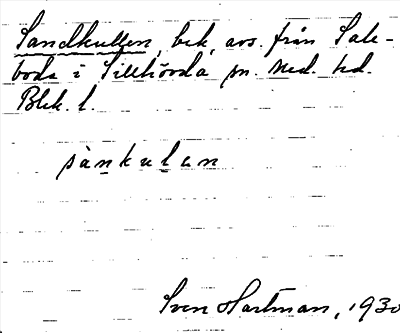 Sandkullen, bek. avs. från Sale-
boda i Tillhövda sn. Med. hd.
Blek. l.
sànkulan
Sven Hartman, 1930